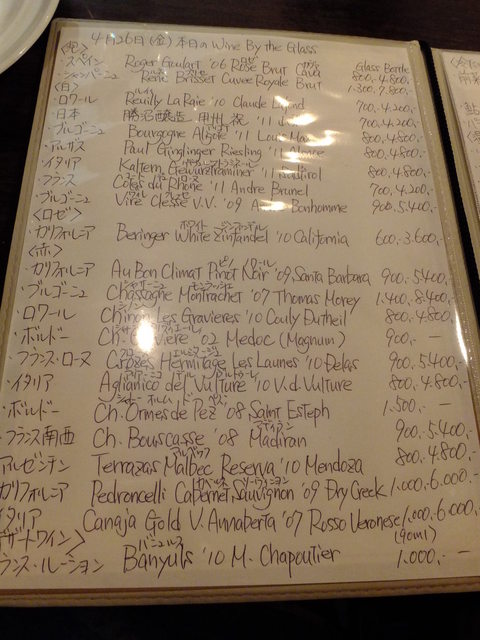 4月26日(金)本日のWine By the Glass
<泡> Glass Bottle
・スペイン Roger Goulart '06 Rosé Brut Cava 800,- 4.800,-
・シャンパーニュ René Brisset Cuvee Royale Brut 1.300,- 7.800,-
<白>
・ロワール Reuilly La Raie '10 Claude Lafond 700,- 4.200,-
・日本 勝沼醸造 甲州 '11 700,- 4.200,-
・ブルゴーニュ Bourgogne Aligoté '11 Louis 800,- 4.800,-
・アルザス Paul Ginglinger Riesling '11 Alsace 800,- 4.800,-
・イタリア Kaltern Gewürztraminer '11 Südtirol 800,- 4.800,-
・フランス Côtes du Rhône '11 Andre Brunel 700,- 4.200,-
・ブルゴーニュ Viré Clessé V.V. '09 Bonhomme 900,- 5.400,-
<ロゼ>
・カリフォルニア Beringer White Zinfandel '10 California 600,- 3.600,-
<赤>
・カリフォルニア Au Bon Climat Pinot Noir '09 Santa Barbara 900,- 5.400,-
・ブルゴーニュ Chassagne Montrachet '07 Thomas Morey 1.400,- 8.400,-
・ロワール Chinon Les Gravieres '10 Couly Dutheil 800,- 4.800,-
・ボルドー Ch. '02 Medoc (Magnum) 900,- —
・フランス・ローヌ Crozes Hermitage Les Launes '10 Delas 900,- 5.400,-
・イタリア Aglianico del Vulture '10 V.d.Vulture 800,- 4.800,-
・ボルドー Ch. Ormes de Pez '08 Saint Esteph 1.500,- —
・フランス南西 Ch. Bouscasse '08 Madiran 900,- 5.400,-
アルゼンチン Terrazas Malbec Reserva '10 Mendoza 800,- 4.800,-
カリフォルニア Pedroncelli Cabernet Sauvignon '09 Dry Creek 1.000,- 6.000,-
イタリア Canaja Gold V. Annaberta '07 Rosso Veronese 1.000,- 6.000,-
デザートワイン> (90ml)
ランス・ルーション Banyuls '10 M. Chapoutier 1.000,- —